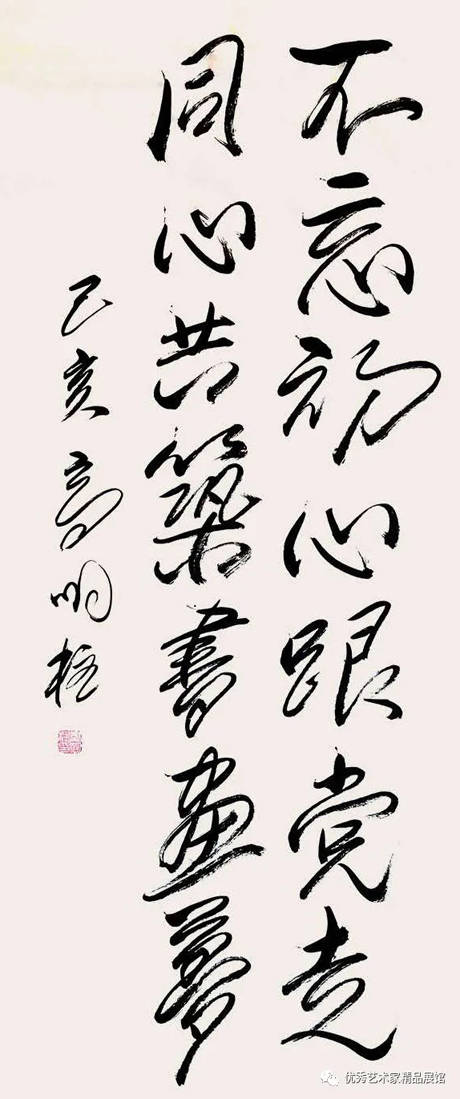 不忘初心跟党走
同心共築書畫夢
己亥高明柱
优秀艺术家精品展馆